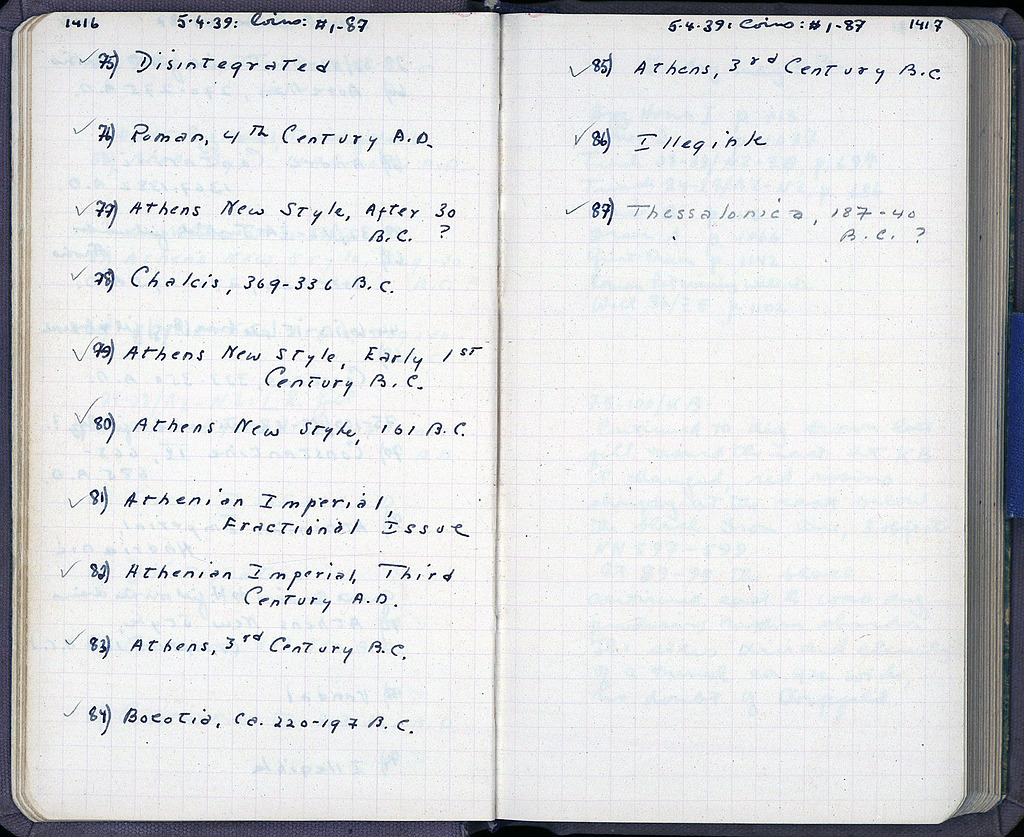 1416 5.4.39: Coins: #1-87
75) Disintegrated
76) Roman, 4th Century A.D.
77) Athens New Style, After 30
B.C. ?
78) Chalcis, 369-336 B.C.
79) Athens New Style, Early 1st
Century B.C.
80) Athens New Style, 161 B.C.
81) Athenian Imperial,
Fractional Issue
82) Athenian Imperial, Third
Century A.D.
83) Athens, 3rd Century B.C.
84) Boeotia, Ca. 220-197 B.C.
5.4.39: Coins: #1-87 1417
85) Athens, 3rd Century B.C.
86) Illegible
87) Thessalonica, 187-40
B.C. ?